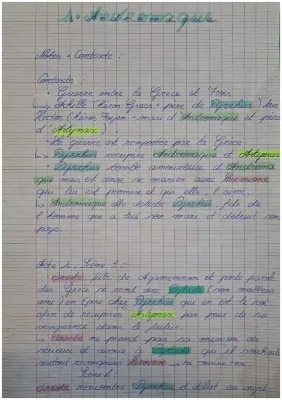 Andromaque
Notes : Contexte :
Contexte :
• Guerre entre la Grèce et Troie
↳ Achille (héros Grecs + père de Pyrrhus) tue
Hector (héros Troyen - mari d'Andromaque et père
d'Astynax).
• La guerre est remportée par la Grèce
↳ Pyrrhus récupère Andromaque et Astynax
• Pyrrhus tombe amoureux d'Andromaque
que mais est censé se marier avec Hermione
qui lui est promise et qui elle, l'aime.
↳ Andromaque elle déteste Pyrrhus, fils de
l'homme qui a tué son mari et détruit son
pays.
Acte 1, Scène 1 :
Oreste fils de Agamemnon et porte parole
des Grecs se rend avec Pylade (son meilleur
ami) en Epire chez Pyrrhus qui en est le roi
afin de récupérer Astynax par peur de sa
vengeance dans le futur.
↳ Oreste ne prend pas sa mission au
sérieux et avoue à Pylade qu'il souhait
surtout reconquérir Hermione
Scène 2 :
Oreste rencontre Pyrrhus et débat au sujet